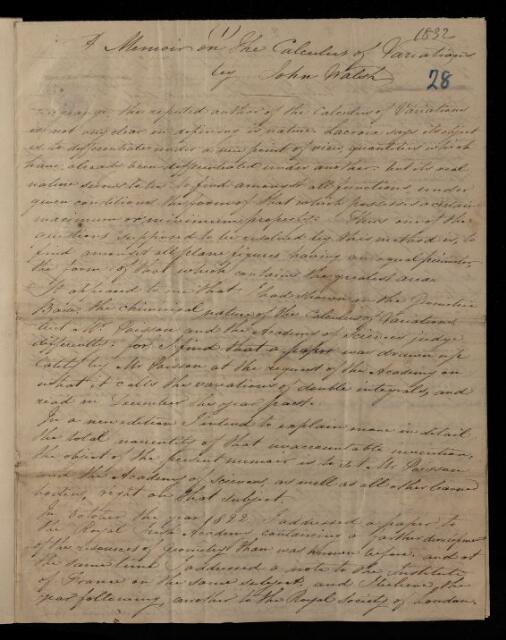 (1)
1832
A Memoir on The Calculus of Variations
by John Walsh
28
the reputed author of the Calculus of Variations
is not very clear in defining its nature. Lacroix says its object
is to differentiate under a new point of view, quantities which
have already been differentiated under another: but its real
nature seems to be to find amongst all functions, under
given conditions the form of that which possesses a certain
maximum or minimum property. Thus one of the
questions supposed to be resolved by this method is, to
find amongst all plane figures having an equal perimeter,
the form of that which contains the greatest area.
It appeared to me that I had shown in the
Base, the chimerical nature of the Calculus of Variations
but Mr. Poisson and the Academy of Sciences judge
differently: for I find that a paper was drawn up
lately by Mr. Poisson at the request of the Academy on
what it calls the variations of double integrals, and
read in December the year past.
In a new edition I intend to explain more in detail
the total nonentity of that unaccountable invention,
the object of the present memoir is to set Mr. Poisson
and the Academy of Sciences, as well as all other learned
bodies, right on that subject.
In October the year 1822, I addressed a paper to
the Royal Irish Academy containing a farther development
of the resources of geometry than was known before, and at
the same time I addressed a note to the Institute
of France on the same subject, and I believe, the
year following, another to the Royal Society of London.